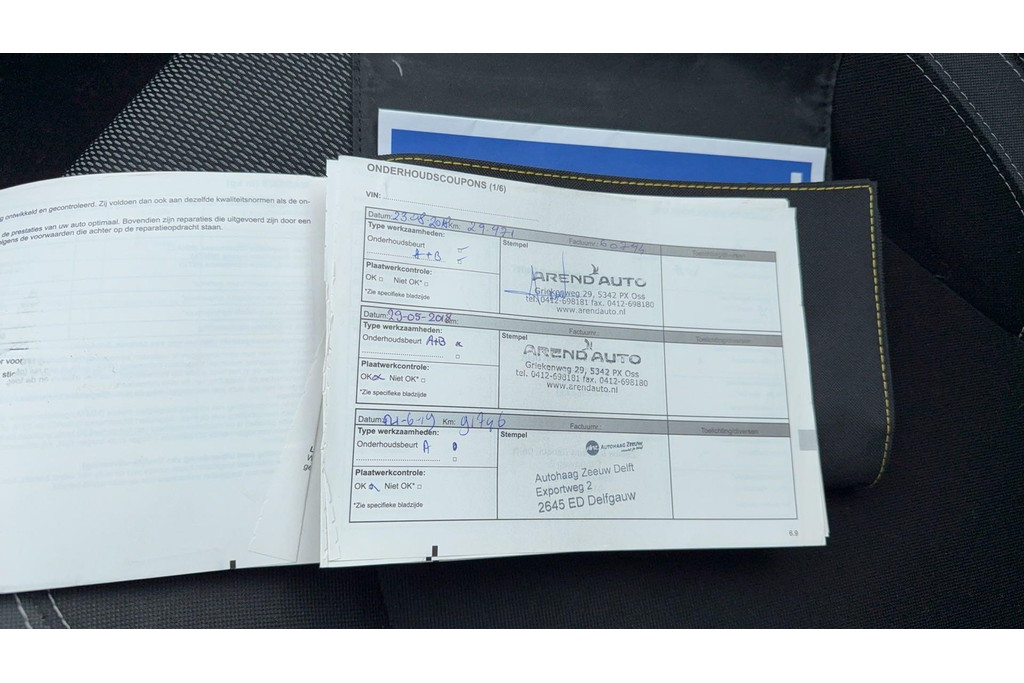 g ontwikkeld en gecontroleerd. Zij voldoen dan ook aan dezelfde kwaliteitsnormen als de on-
de prestaties van uw auto optimaal. Bovendien zijn reparaties die uitgevoerd zijn door een
lgens de voorwaarden die achter op de reparatieopdracht staan.
r voor
ONDERHOUDSCOUPONS (1/6)
VIN:
Datum: Km: 29.971 Factuurnr.: 60794
Type werkzaamheden:
Stempel
Onderhoudsbeurt
A+B
Plaatwerkcontrole:
OK Niet OK*
*Zie specifieke bladzijde
AREND AUTO
Griekenweg 29, 5342 PX Oss
tel. 0412-698181 fax. 0412-698180
www.arendauto.nl
Datum: 29-05-2018 Km: Factuurnr.:
Type werkzaamheden:
Stempel
Onderhoudsbeurt A+B
Plaatwerkcontrole:
OK Niet OK*
*Zie specifieke bladzijde
AREND AUTO
Griekenweg 29, 5342 PX Oss
tel. 0412-698181 fax. 0412-698180
www.arendauto.nl
Datum: Km: 91746 Factuurnr.:
Type werkzaamheden:
Stempel
Onderhoudsbeurt A
Plaatwerkcontrole:
OK Niet OK*
*Zie specifieke bladzijde
AUTOHAAG ZEEUW
Autohaag Zeeuw Delft
Exportweg 2
2645 ED Delfgauw
6.9